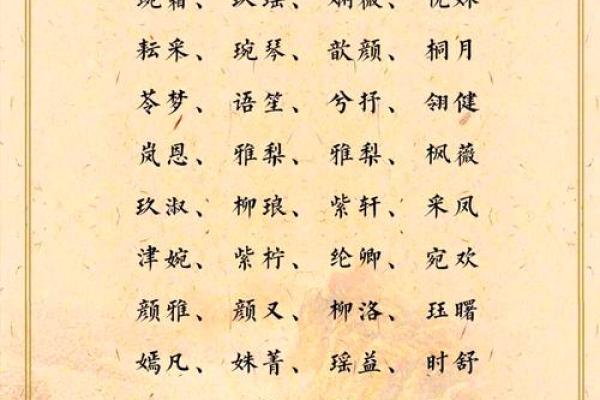 耘采、琬琴、歆颜、桐月
苓梦、语笙、兮抒、翎健
岚恩、雅梨、雅梨、枫薇
玖淑、柳琅、紫轩、采凤
津婉、紫柠、纶卿、宛欢
颜雅、颜又、柳洛、珏曙
嫣凡、姝菁、瑶益、时舒